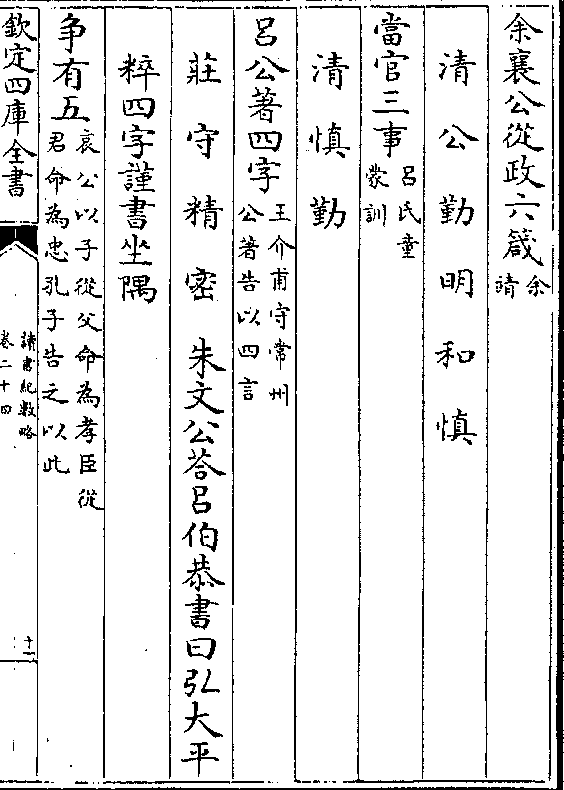 余襄公從政六箴余靖
清公勤明和慎
當官三事呂氏童蒙訓
清慎勤
呂公著四字王介甫守常州公著告以四言
莊守精密朱文公荅呂伯恭書曰弘大平
粹四字謹書坐隅
争有五哀公以子從父命為孝臣從君命為忠孔子告之以此
欽定四庫全書
讀書紀數略
卷二十四
十一